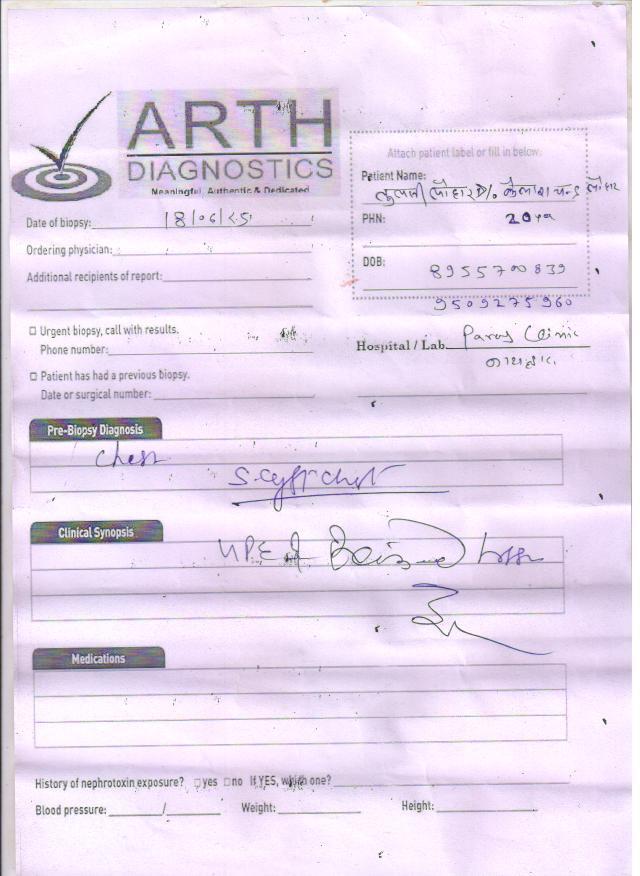 ARTH
DIAGNOSTICS
Meaningful, Authentic & Dedicated
Attach patient label or fill in below.
Patient Name:
लौहार D/o कैलाश चन्द्र लौहार
PHN: 20 ya
DOB: 8955700839
9509275960
Date of biopsy: 18/06/25
Ordering physician:
Additional recipients of report:
□ Urgent biopsy, call with results.
Phone number:
Hospital / Lab. Paras Clinic
□ Patient has had a previous biopsy.
Date or surgical number:
Pre-Biopsy Diagnosis
Chest
S. cyst chest
Clinical Synopsis
HPE of
Medications
History of nephrotoxin exposure? □yes □no If YES, which one?
Blood pressure: / Weight: Height: